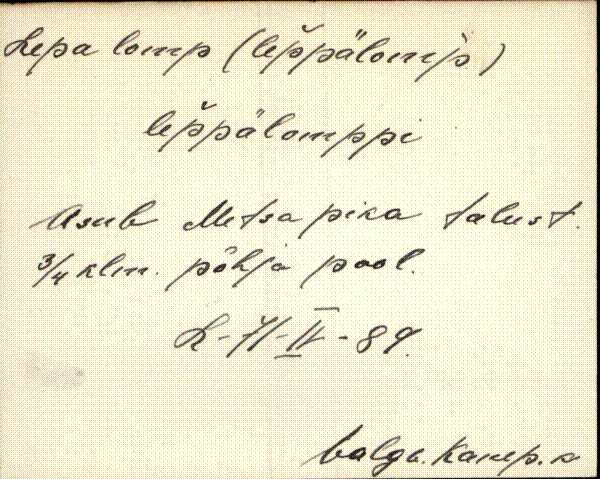 Lepa lomp (lep̌pälomp̀)
lep̌pälomppi
Asub Metsa pika talust.
3/4 klm. põhja pool.
K-71-IV-89.
Valga. Karep. k